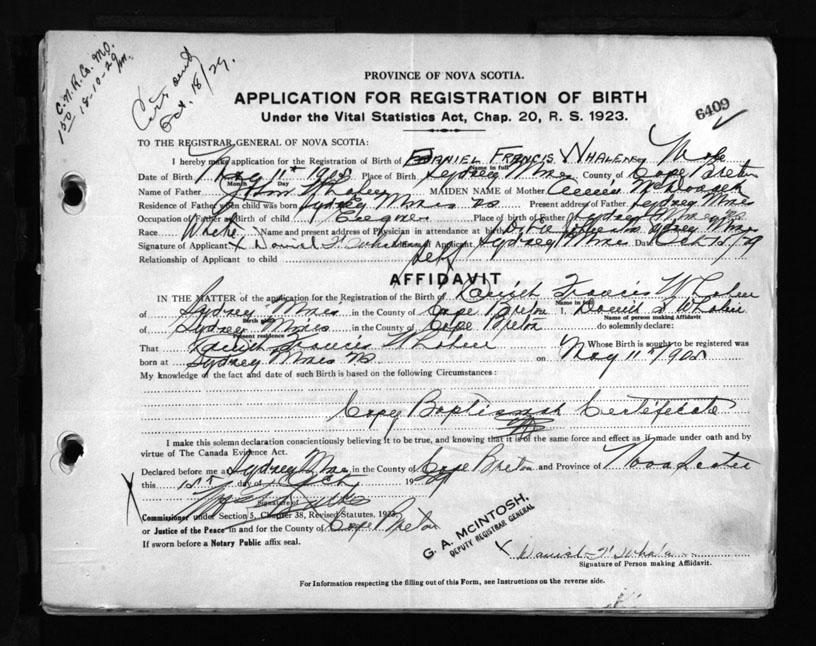 C.N.R. Co. M.O.
150 18-10-29
Oct. 18/29.
PROVINCE OF NOVA SCOTIA.
APPLICATION FOR REGISTRATION OF BIRTH
6409
Under the Vital Statistics Act, Chap. 20, R. S. 1923.
TO THE REGISTRAR GENERAL OF NOVA SCOTIA:
I hereby make application for the Registration of Birth of DANIEL FRANCIS WHALEN Sex Male
Name in full
Date of Birth May 11th 1908 Place of Birth Sydney Mines County of Cape Breton
Month Day
Name of Father Whalen MAIDEN NAME of Mother
Residence of Father when child was born Sydney Mines NS Present address of Father Sydney Mines
Occupation of Father at Birth of child Place of birth of Father Sydney Mines NS
Race White Name and present address of Physician in attendance at birth Sydney Mines
Signature of Applicant X Daniel F. Whalen Applicant Sydney Mines Date Oct 15/29
Relationship of Applicant to child Self
AFFIDAVIT
IN THE MATTER of the application for the Registration of the Birth of Daniel Francis Whalen
Name in full
of Sydney Mines in the County of Cape Breton I, Daniel F Whalen
Birth place Name of person making Affidavit
of Sydney Mines in the County of Cape Breton do solemnly declare:
Present residence
That Daniel Francis Whalen Whose Birth is sought to be registered was
born at Sydney Mines NS on May 11th 1908
My knowledge of the fact and date of such Birth is based on the following Circumstances:
Copy Baptismal Certificate
I make this solemn declaration conscientiously believing it to be true, and knowing that it is of the same force and effect as if made under oath and by
virtue of The Canada Evidence Act.
Declared before me at Sydney Mines in the County of Cape Breton and Province of Nova Scotia
this 15th day of Oct 1929
Signature of
Commissioner under Section 5, Chapter 38, Revised Statutes, 1923
or Justice of the Peace in and for the County of Cape Breton
If sworn before a Notary Public affix seal.
G. A. McINTOSH,
DEPUTY REGISTRAR GENERAL
X Daniel F Whalen
Signature of Person making Affidavit.
For Information respecting the filling out of this Form, see Instructions on the reverse side.